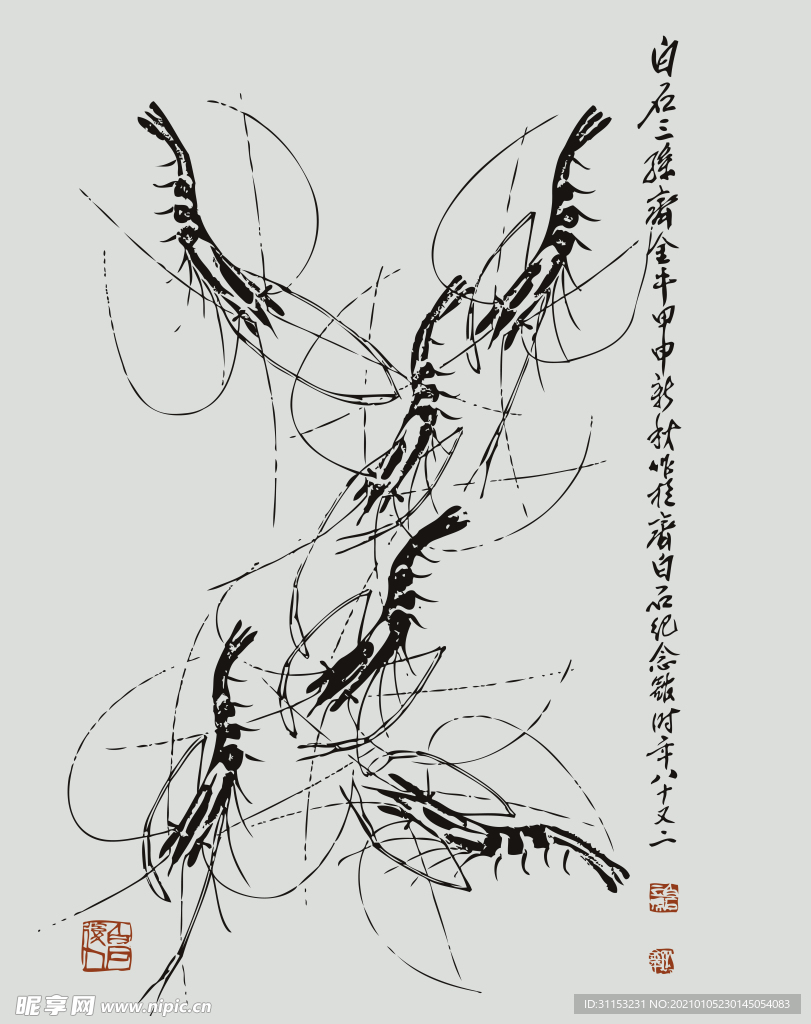 白石三孫齊金平甲申新秋作於齊白石紀念館时年八十又二
昵享网 www.nipic.cn
ID:31153231 NO:20210105230145054083